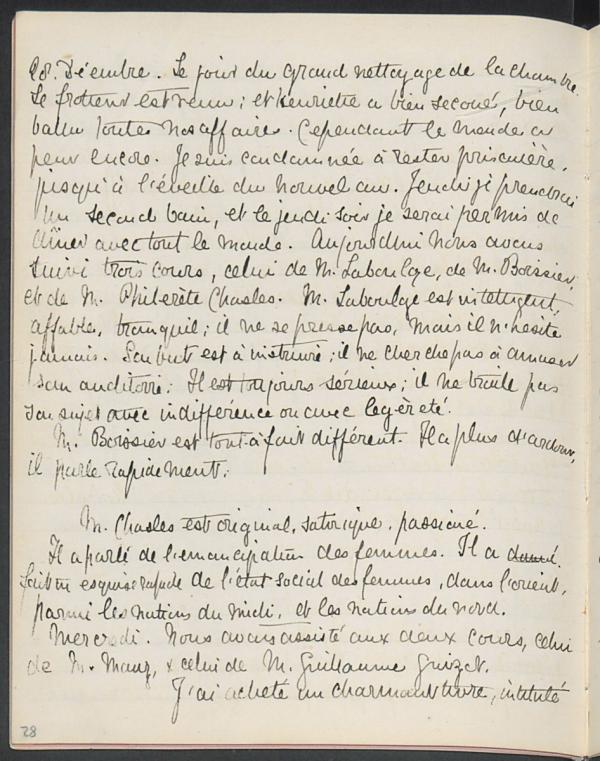 28. Décembre. Le jour du grand nettoyage de la chambre.
Le frotteur est venu; et Henriette a bien secoué, bien
battu toutes nos affaires. Cependant le monde a
peur encore. Je suis condamnée à rester prisonière,
jusqu'à l'éveille du nouvel an. Jeudi je prendrai
un second bain, et le jeudi soir je serai permis de
dîner avec tout le monde. Aujourdhui nous avons
suivi trois cours, celui de M. Laboulaye, de M. Boissier,
et de M. Philerète Chasles. M. Laboulaye est intelligent,
affable, tranquil; il ne se presse pas, mais il n'hesite
jamais. Son but est à instruire; il ne cherche pas à amuser
son auditoire. Il est toujours sérieux; il ne traite pas
son sujet avec indifférence ou avec legèreté.
M. Boissier est tout-à-fait différent. Il a plus d'ardour,
il parle rapidement.
M. Chasles est original, satirique, passioné.
Il a parlé de l'emancipation des femmes. Il a donné
fait un esquise rapide de l'état social des femmes, dans l'orient,
parmi les nations du midi, et les nations du nord.
Mercredi. Nous avons assisté aux deux cours, celui
de M. Maury, & celui de M. Guillaume Guizot.
J'ai acheté un charmant livre, intitulé
28